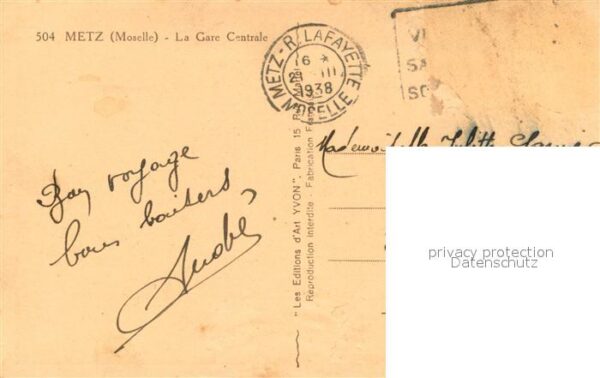 504 METZ (Moselle) - La Gare Centrale
METZ-R. LAFAYETTE
6 *
2 III
1938
MOSELLE
Mademoiselle
Bon voyage
bons baisers,
André
"Les Editions d'Art YVON", Paris 15 Rue
Reproduction Interdite - Fabrication
privacy protection
Datenschutz